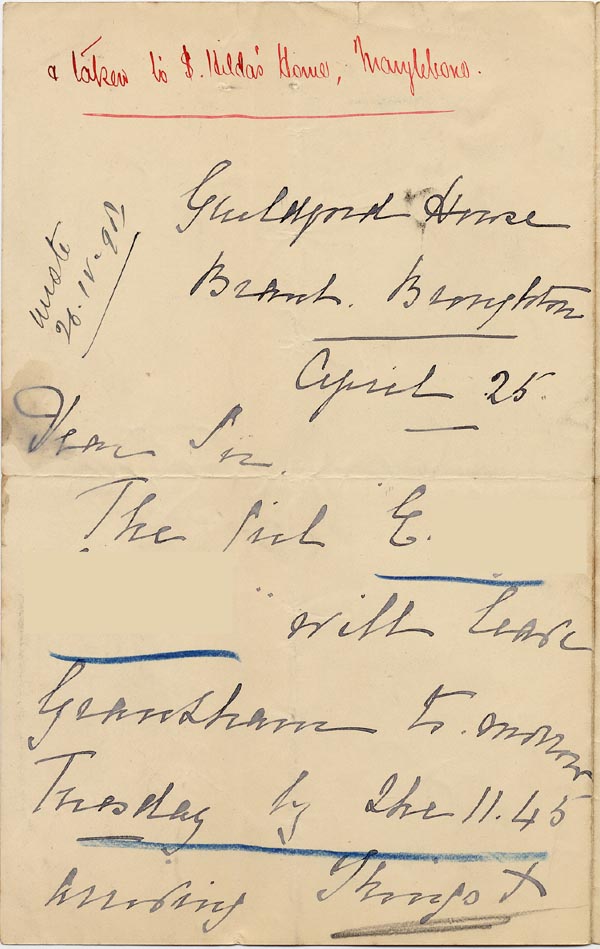 & taken to S. Hilda's Home, Marylebone.
Guildford House
Brant. Broughton
April 25.
wrote
26. IV. 98
Dear Sir,
The Girl E.
will leave
Grantham to. morrow
Tuesday by the 11.45
arriving Kings X